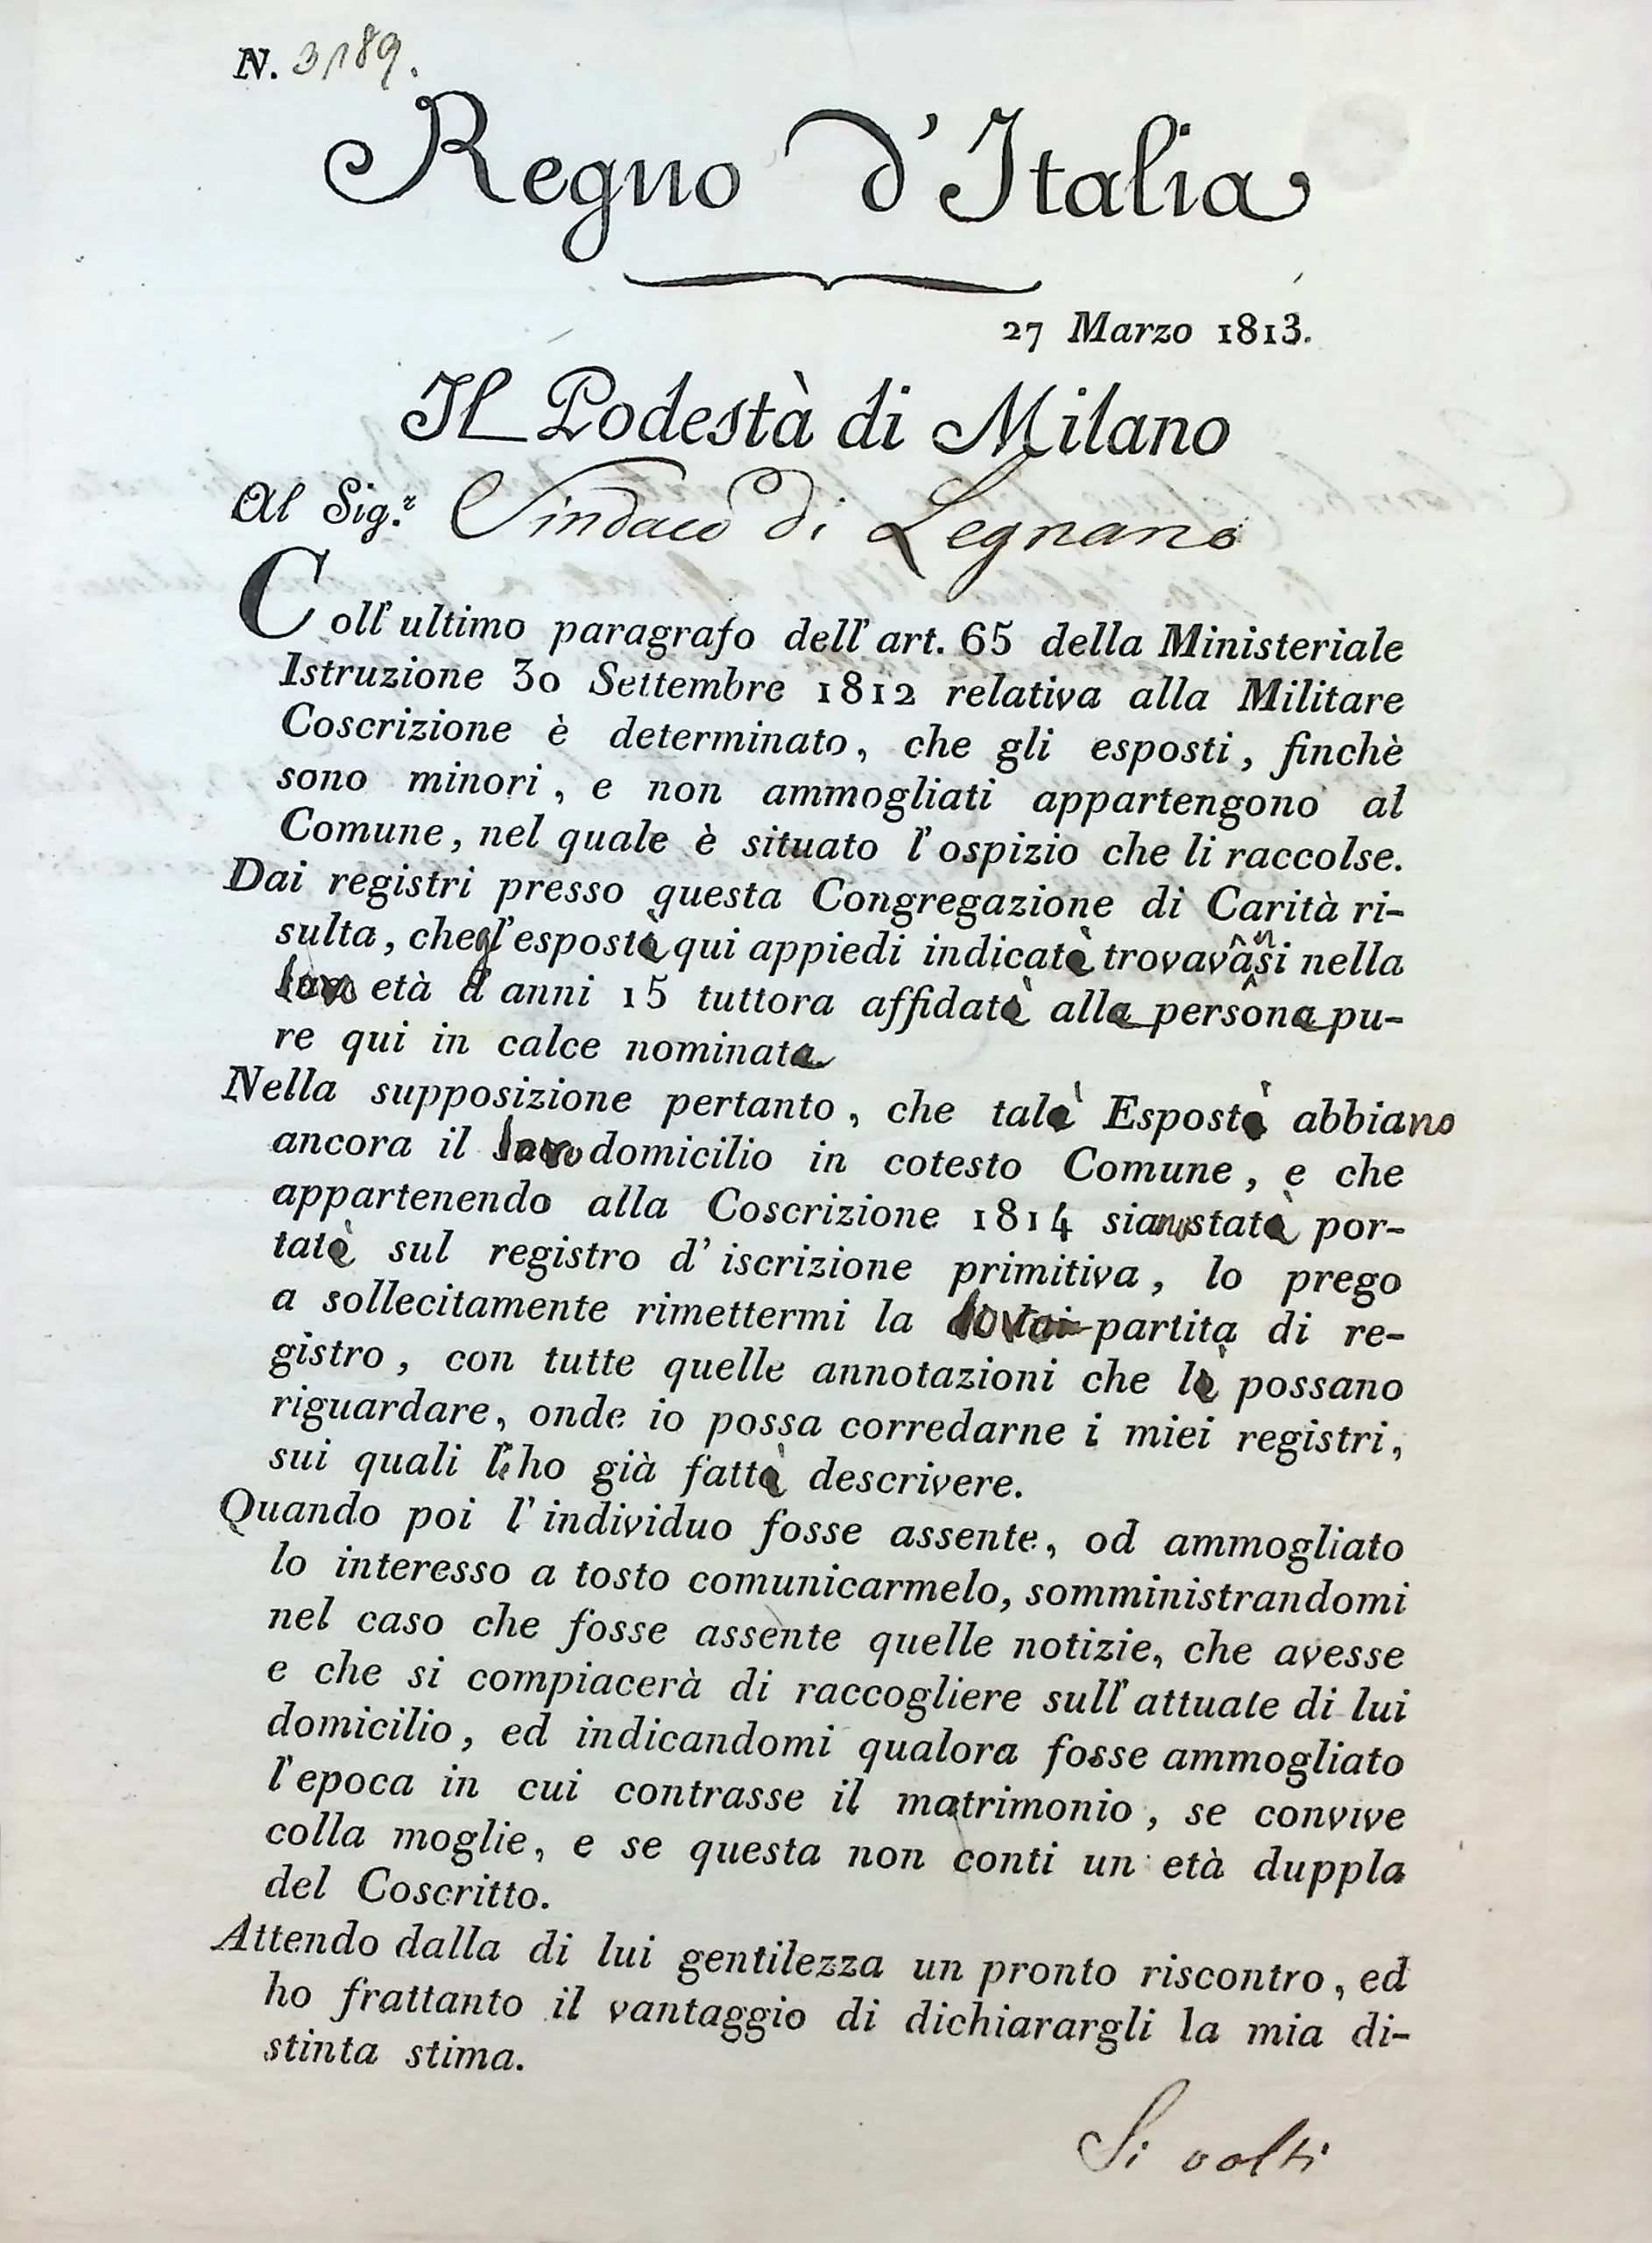 N. 3189.
Regno d'Italia
27 Marzo 1813.
Il Podestà di Milano
Al Sig.r Sindaco di Legnano
Coll' ultimo paragrafo dell' art. 65 della Ministeriale
Istruzione 30 Settembre 1812 relativa alla Militare
Coscrizione è determinato, che gli esposti, finchè
sono minori, e non ammogliati appartengono al
Comune, nel quale è situato l'ospizio che li raccolse.
Dai registri presso questa Congregazione di Carità ri-
sulta, che gl'esposti qui appiedi indicati trovavansi nella
loro età d'anni 15 tuttora affidati alle persone pu-
re qui in calce nominate
Nella supposizione pertanto, che tali Esposti abbiano
ancora il loro domicilio in cotesto Comune, e che
appartenendo alla Coscrizione 1814 siano stati por-
tati sul registro d'iscrizione primitiva, lo prego
a sollecitamente rimettermi la partita di re-
gistro, con tutte quelle annotazioni che li possano
riguardare, onde io possa corredarne i miei registri,
sui quali li ho già fatti descrivere.
Quando poi l'individuo fosse assente, od ammogliato
lo interesso a tosto comunicarmelo, somministrandomi
nel caso che fosse assente quelle notizie, che avesse
e che si compiacerà di raccogliere sull'attuale di lui
domicilio, ed indicandomi qualora fosse ammogliato
l'epoca in cui contrasse il matrimonio, se convive
colla moglie, e se questa non conti un età duppla
del Coscritto.
Attendo dalla di lui gentilezza un pronto riscontro, ed
ho frattanto il vantaggio di dichiarargli la mia di-
stinta stima.
Si volti